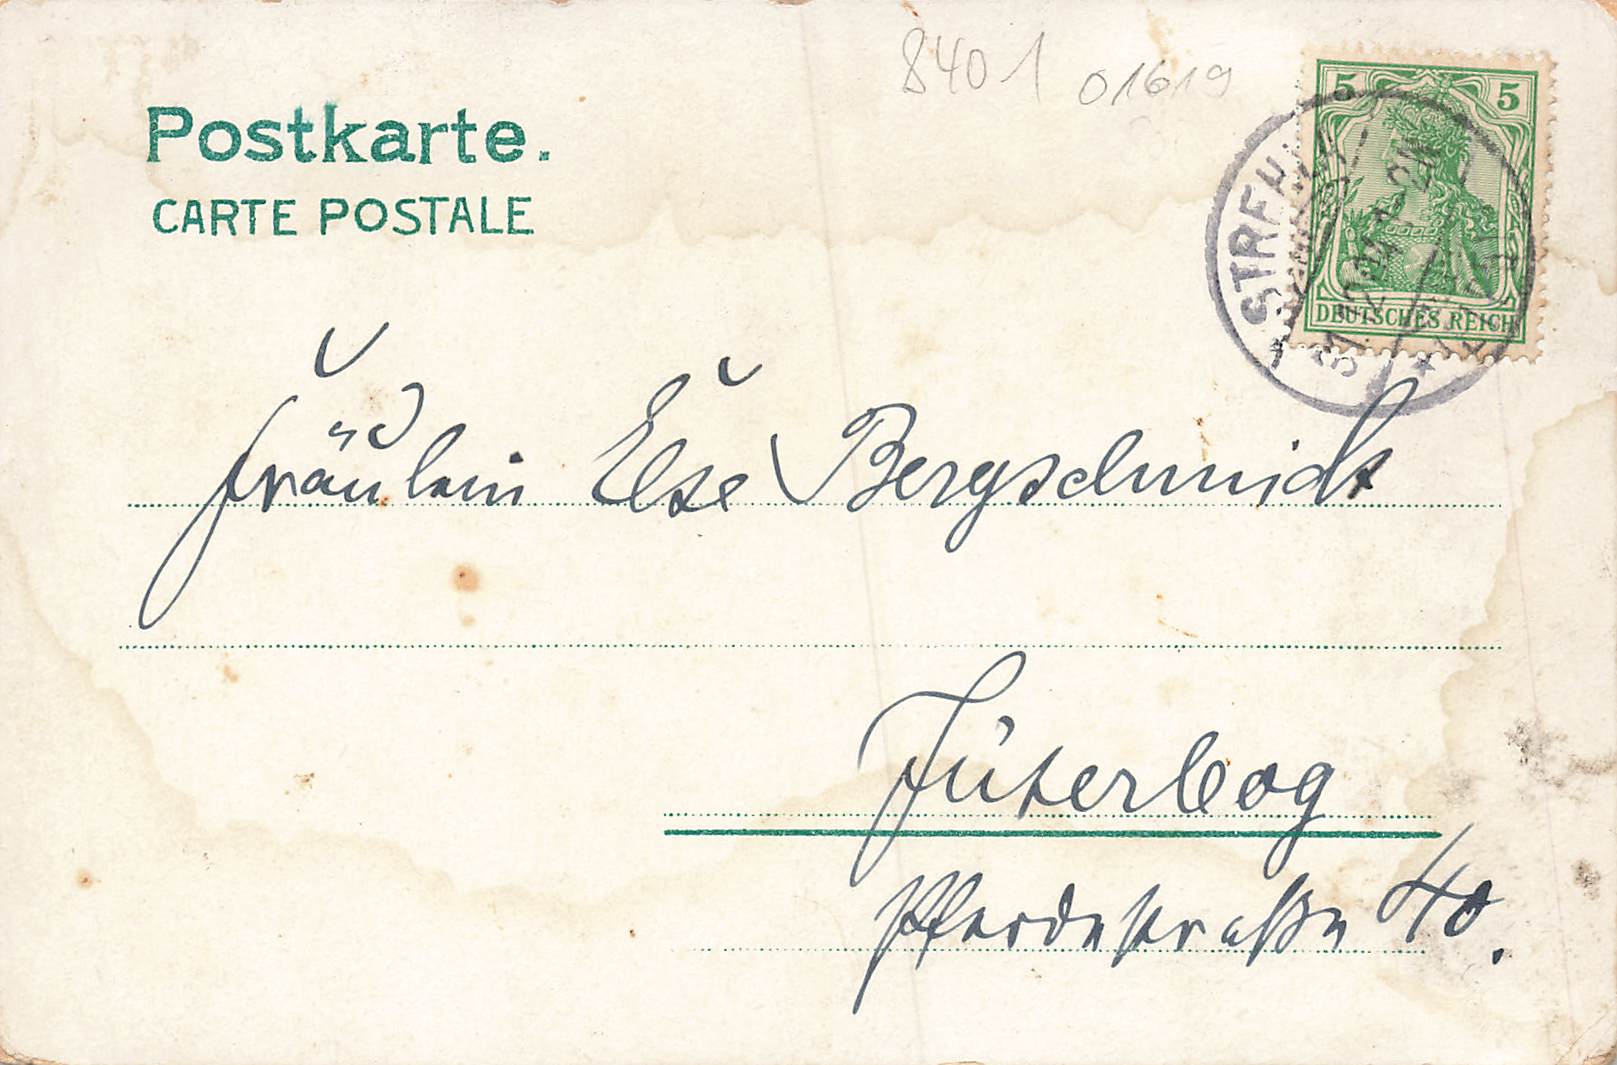 8401 01619
Postkarte.
CARTE POSTALE
5 5
DEUTSCHES REICH
STREHLA
Fräulein Else Bergschmidt
Jüterbog
Pferdestraße 40.